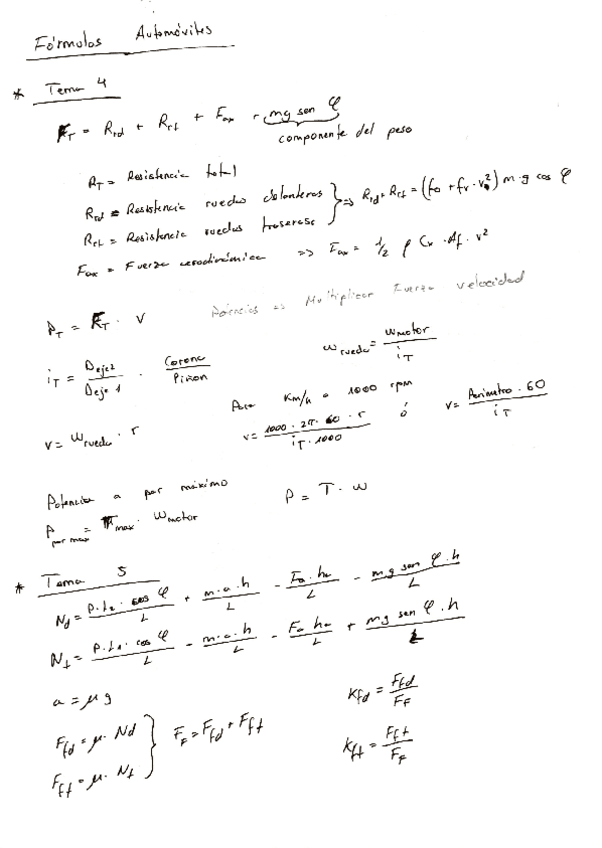 Fórmulas Automóviles
* Tema 4
F_T = R_rd + R_rt + F_ax + mg sen φ
componente del peso
R_T = Resistencia total
R_rd = Resistencia ruedas delanteras
R_rt = Resistencia ruedas traseras } => R_rd + R_rt = (f_o + f_v · v²) m · g cos φ
F_ax = Fuerza aerodinámica => F_ax = 1/2 ρ C_x · A_f · v²
P_T = F_T · v Potencias => Multiplicar Fuerza velocidad
i_T = Deje2/Deje1 · Corona/Piñon ω_rueda = ω_motor/i_T
Para Km/h a 1000 rpm
v = ω_rueda · r v = 1000 · 2π · 60 · r / i_T · 1000 ó v = Perimetro · 60 / i_T
Potencia a par máximo P = T · ω
P_par max = T_max · ω_motor
* Tema 5
N_d = P · L_2 · cos φ / L + m · a · h / L - F_a · h_a / L - mg sen φ · h / L
N_t = P · L_1 · cos φ / L - m · a · h / L - F_a h_a / L + mg sen φ · h / L
a = μ g K_fd = F_fd / F_F
F_fd = μ · N_d } F_F = F_fd + F_ft
F_ft = μ · N_t K_ft = F_ft / F_F